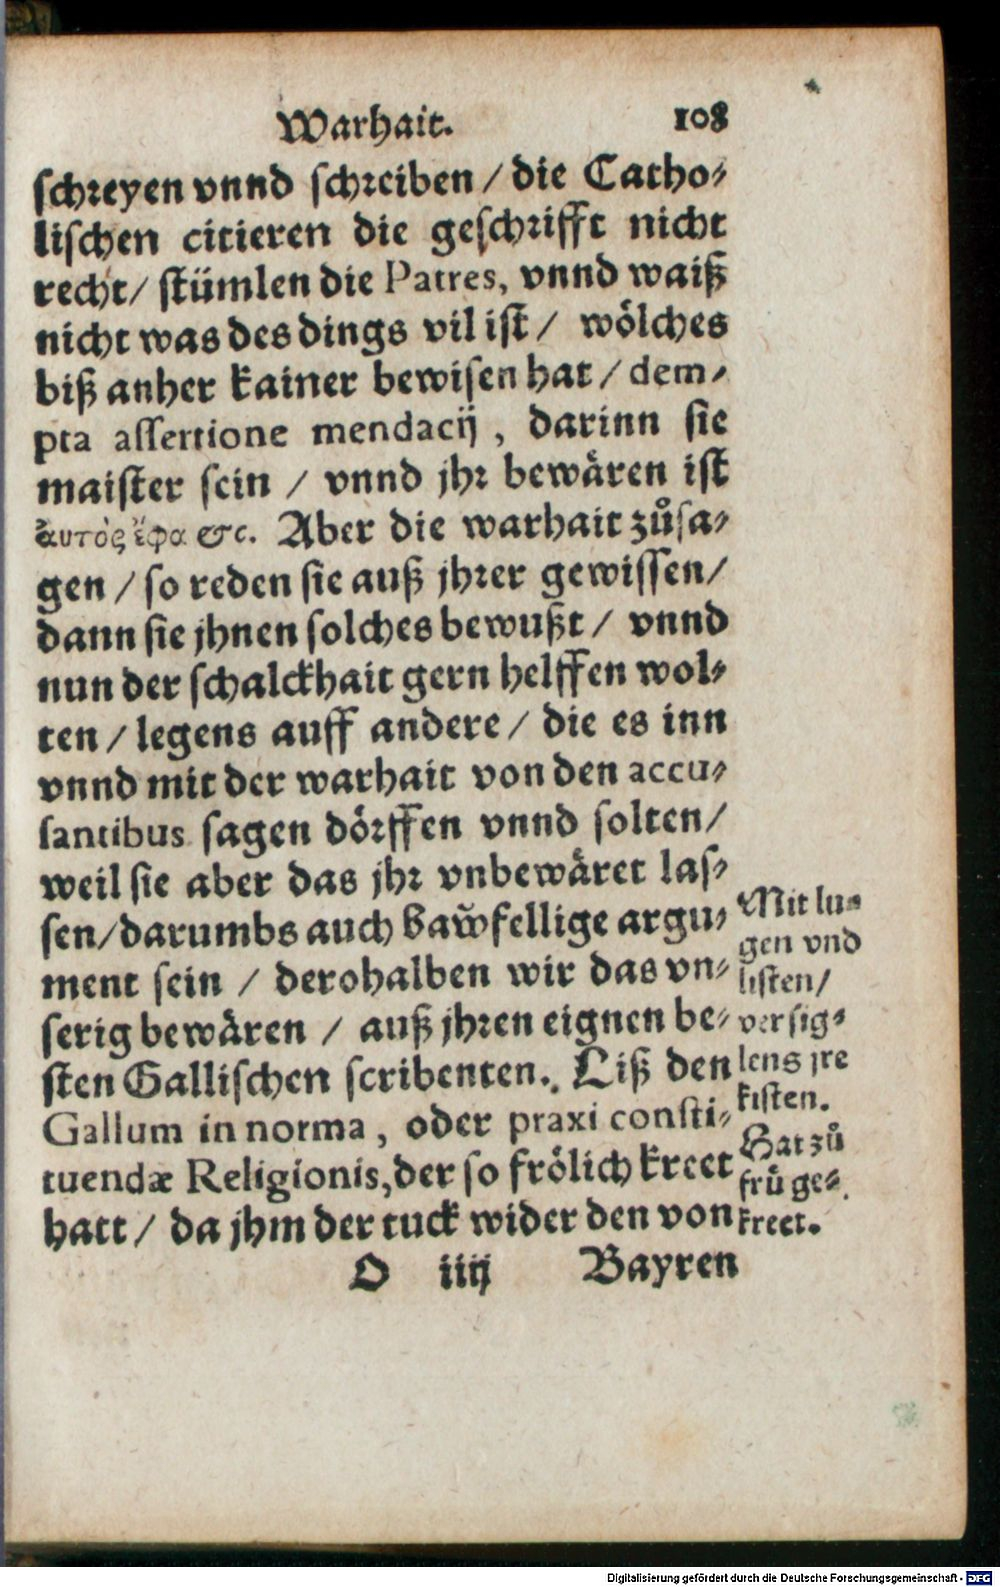 Warhait. 108
schreyen vnnd schreiben / die Catho-
lischen citieren die geschrifft nicht
recht / stümlen die Patres, vnnd waiß
nicht was des dings vil ist / wölches
biß anher kainer bewisen hat / dem-
pta assertione mendacij, darinn sie
maister sein / vnnd jhr bewären ist
ἀυτὸς ἔφα &c. Aber die warhait zůsa-
gen / so reden sie auß jhrer gewissen /
dann sie jhnen solches bewußt / vnnd
nun der schalckhait gern helffen wol-
ten / legens auff andere / die es inn
vnnd mit der warhait von den accu-
santibus sagen dörffen vnnd solten /
weil sie aber das jhr vnbewäret las-
sen / darumbs auch bawfellige argu-
ment sein / derohalben wir das vn-
serig bewären / auß jhren eignen be-
sten Gallischen scribenten. Liß den
Gallum in norma, oder praxi consti-
tuendæ Religionis, der so frölich kreet
hatt / da jhm der tuck wider den von
Mit lu-
gen vnd
listen /
versig-
lens jre
kisten.
Hat zů
frů ge-
kreet.
O iiij Bayren
Digitalisierung gefördert durch die Deutsche Forschungsgemeinschaft - DFG